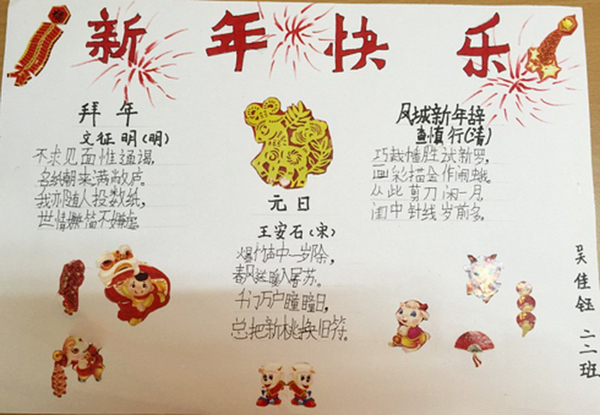 新年快乐
拜年
文征明(明)
不求见面惟通谒,
名纸朝来满敝庐。
我亦随人投数纸,
世情嫌简不嫌虚。
元日
王安石(宋)
爆竹声中一岁除,
春风送暖入屠苏。
千门万户瞳瞳日,
总把新桃换旧符。
凤城新年辞
查慎行(清)
巧裁幡胜试新罗,
画彩描金作闹蛾。
从此剪刀闲一月,
闺中针线岁前多。
吴佳钰 二二班